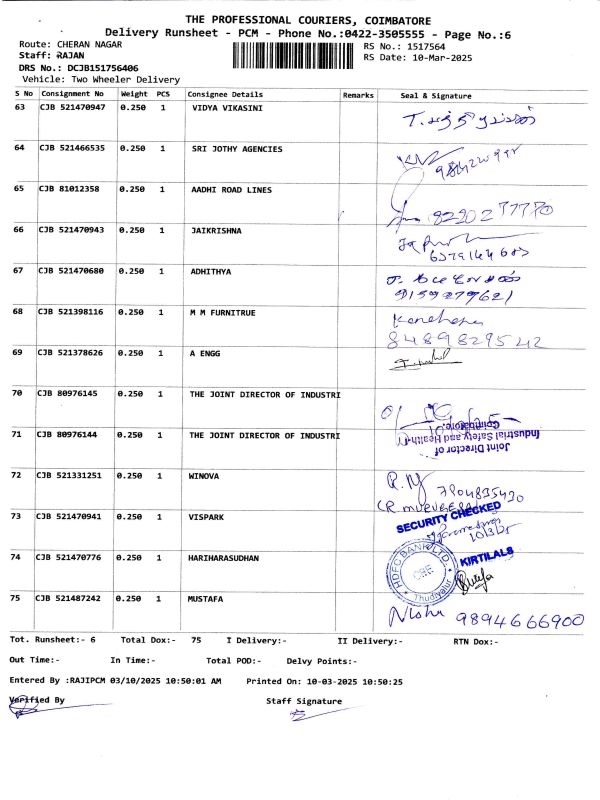 THE PROFESSIONAL COURIERS, COIMBATORE
Delivery Runsheet - PCM - Phone No.:0422-3505555 - Page No.:6
Route: CHERAN NAGAR
RS No.: 1517564
Staff: RAJAN
RS Date: 10-Mar-2025
DRS No.: DCJB151756406
Vehicle: Two Wheeler Delivery
S No Consignment No Weight PCS Consignee Details Remarks Seal & Signature
63 CJB 521470947 0.250 1 VIDYA VIKASINI
64 CJB 521466535 0.250 1 SRI JOTHY AGENCIES
65 CJB 81012358 0.250 1 AADHI ROAD LINES
66 CJB 521470943 0.250 1 JAIKRISHNA
67 CJB 521470680 0.250 1 ADHITHYA
9159279621
68 CJB 521398116 0.250 1 M M FURNITRUE
8489829542
69 CJB 521378626 0.250 1 A ENGG
70 CJB 80976145 0.250 1 THE JOINT DIRECTOR OF INDUSTRI
71 CJB 80976144 0.250 1 THE JOINT DIRECTOR OF INDUSTRI
Joint Director of
Industrial Safety and Health
Coimbatore.
72 CJB 521331251 0.250 1 WINOVA
7904835420
73 CJB 521470941 0.250 1 VISPARK
SECURITY CHECKED
10/3/25
74 CJB 521470776 0.250 1 HARIHARASUDHAN
HDFC BANK LTD.
CBE
Thudiyalur
KIRTILALS
75 CJB 521487242 0.250 1 MUSTAFA
9894666900
Tot. Runsheet:- 6 Total Dox:- 75 I Delivery:- II Delivery:- RTN Dox:-
Out Time:- In Time:- Total POD:- Delvy Points:-
Entered By :RAJIPCM 03/10/2025 10:50:01 AM Printed On: 10-03-2025 10:50:25
Verified By Staff Signature